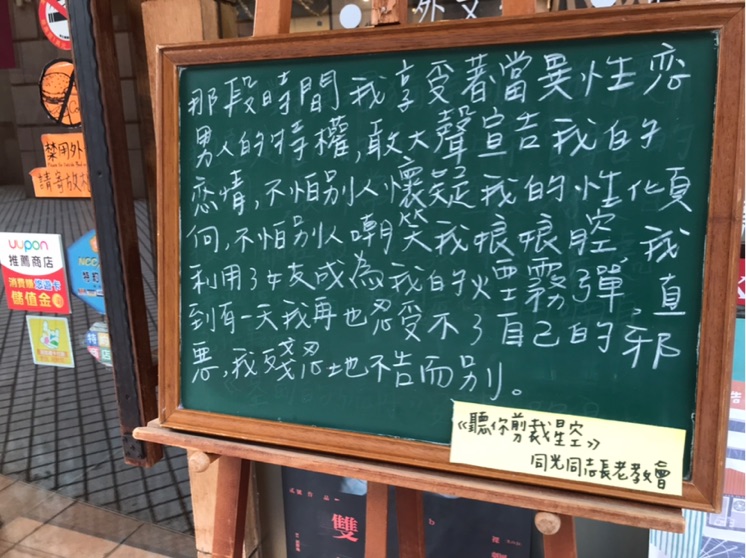 那段時間我享受著當異性戀
男人的特權,敢大聲宣告我的
戀情,不怕別人懷疑我的性傾
向,不怕別人嘲笑我娘娘腔。我
利用了女友成為我的煙霧彈,直
到有一天我再也忍受不了自己的邪
惡,我殘忍地不告而別。
《聽你剪裁星空》
同光同志長老教會
禁用外
uupon
推薦商店
儲值金
雙